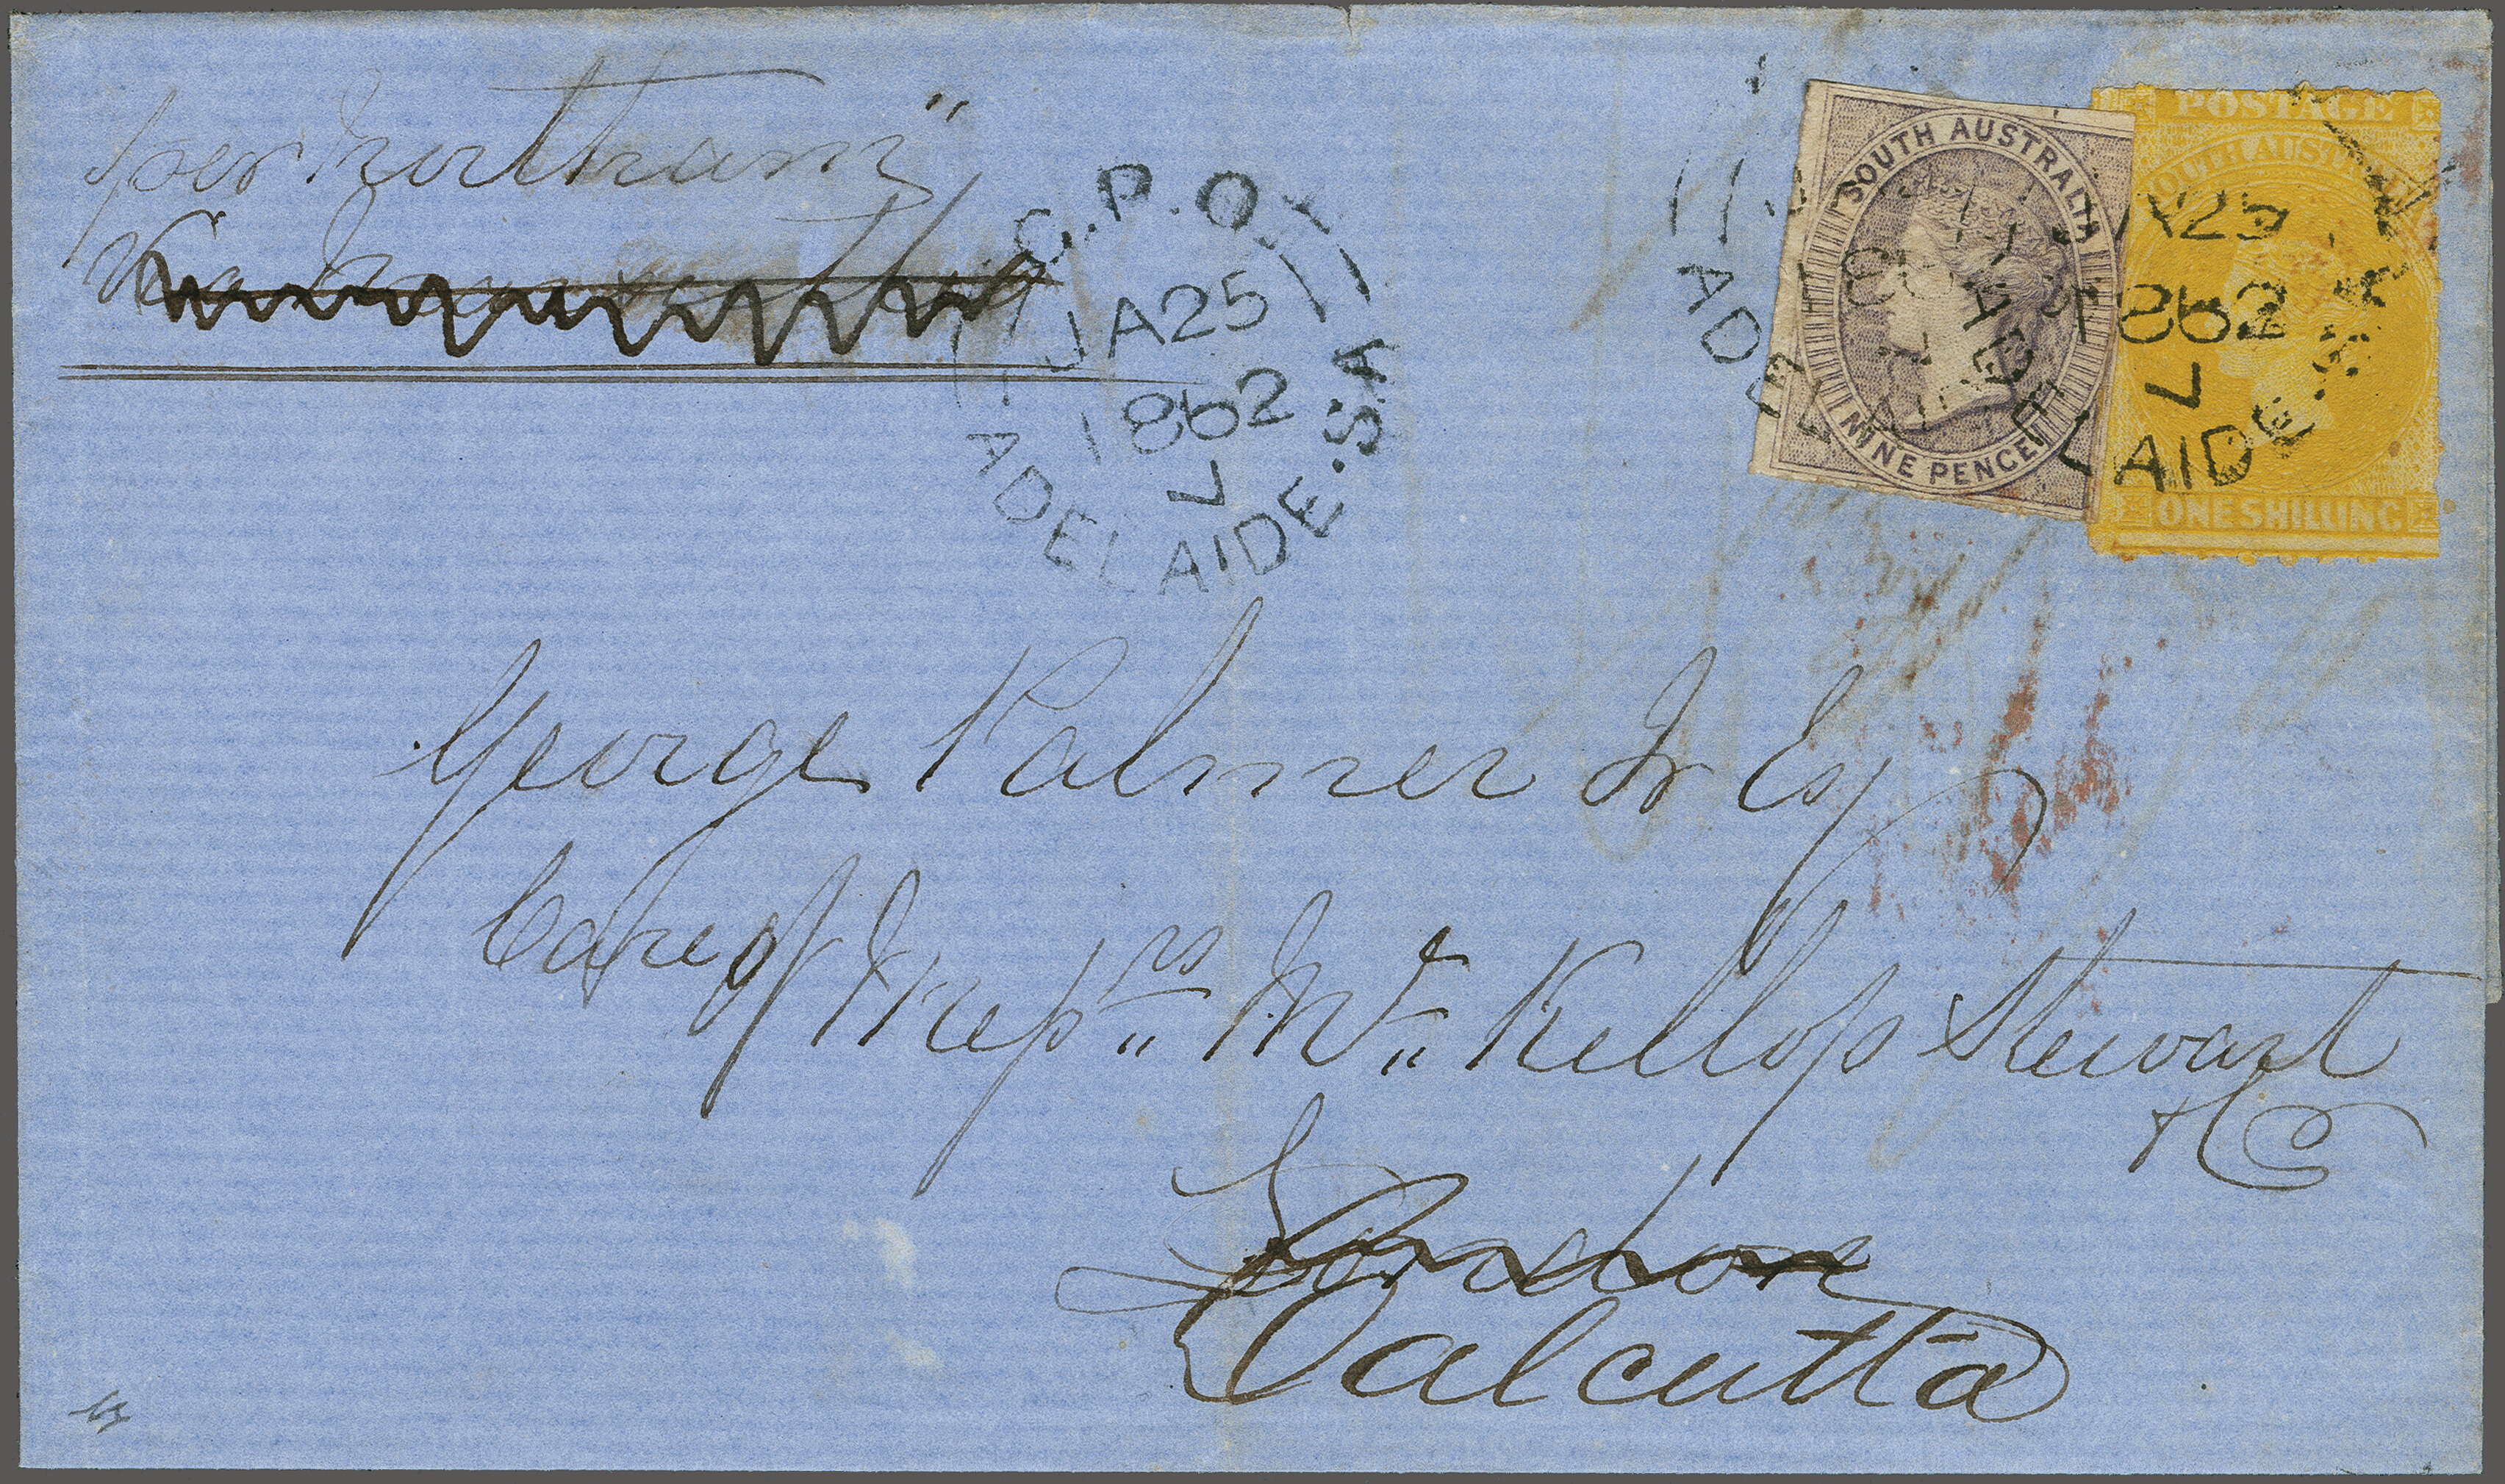 per Northam"
Via
G.P.O.
JA 25
1862
7
ADELAIDE.S.A
SOUTH AUSTRALIA
NINE PENCE
POSTAGE
SOUTH AUSTRALIA
ONE SHILLING
A25
862
7
ADELAIDE.S.A
George Palmer Jr Esq
Care of Messrs Mc Kellop Stewart
& Co
London
Calcutta